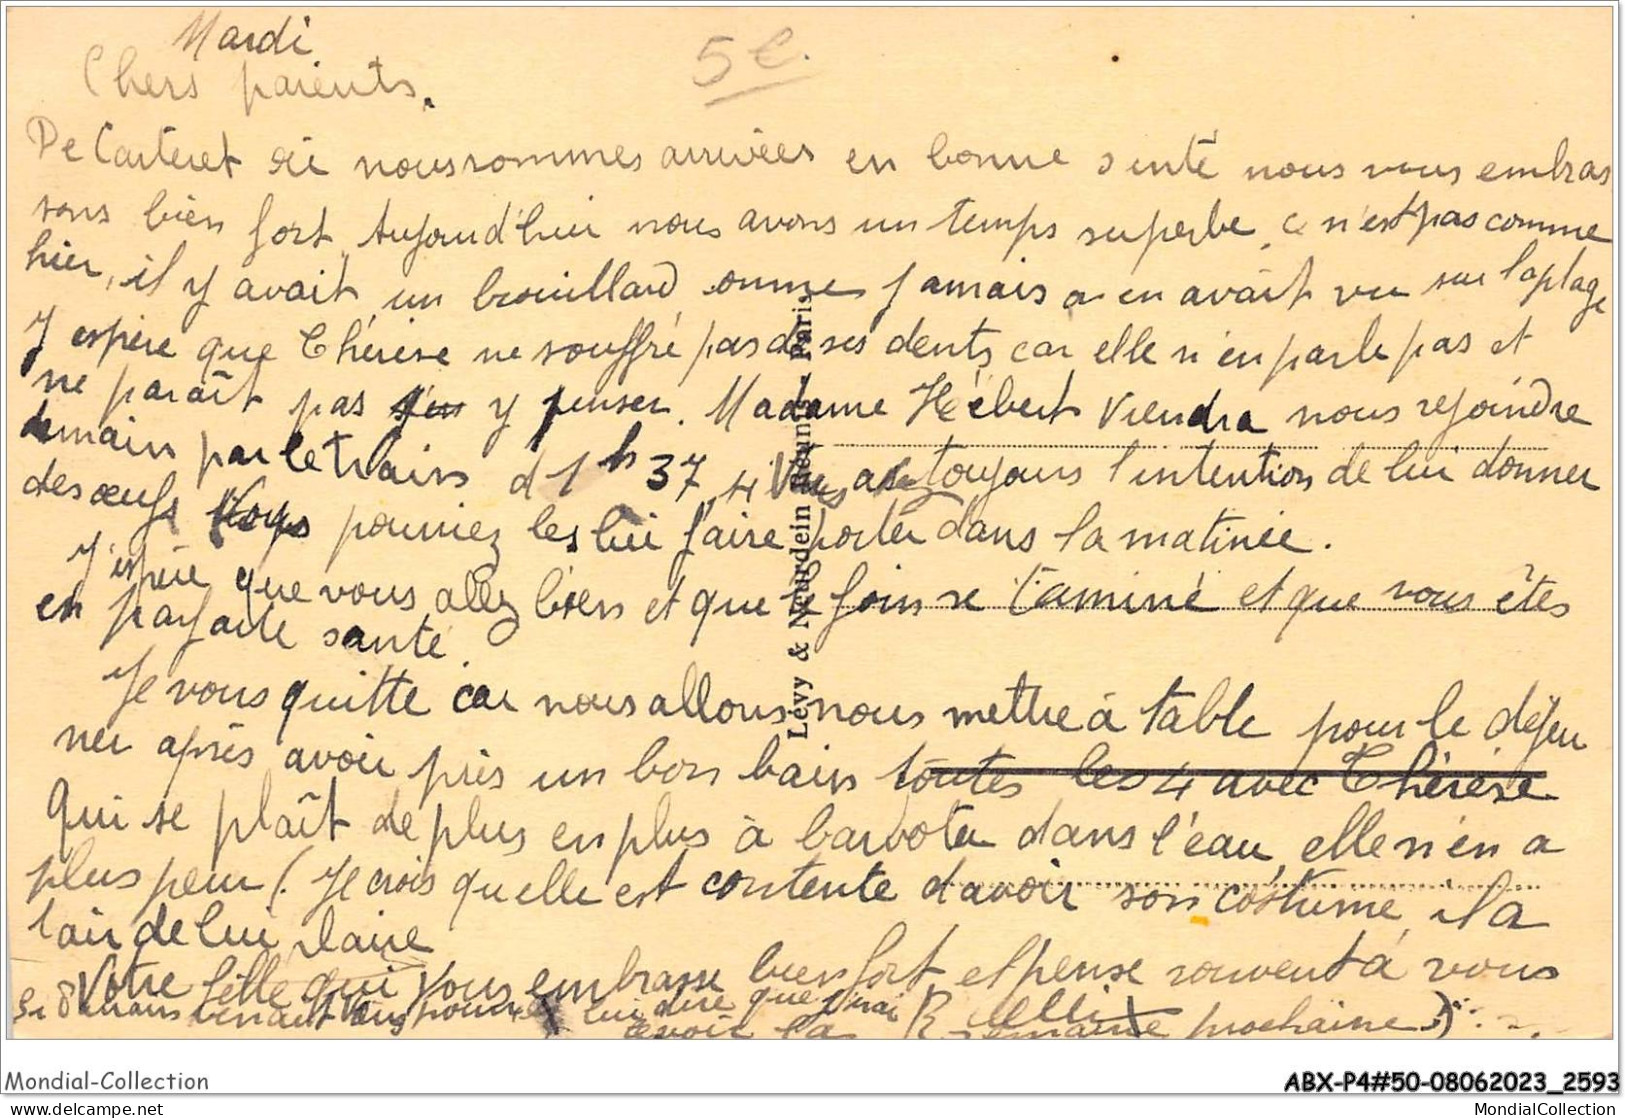 Mardi
5 €.
Chers parients.
De Carteret où nous sommes arrivées en bonne senté nous vous embras
sons bien fort. Aujourd'hui nous avons un temps superbe, ce n'est pas comme
hier, il y avait un brouillard comme jamais on en avait vu sur la plage
J'espère que Thérèse ne souffre pas de ses dents car elle n'en parle pas et
ne paraît pas y penser. Madame Hébert viendra nous rejoindre
demain par le train d 1h 37, toujours l'intention de lui donner
des œufs Vous pourriez les lui faire porter dans la matinée.
J'espère que vous allez bien et que le foin se taminé et que vous êtes
en parfaite santé.
Je vous quitte car nous allons nous mettre à table pour le déjeu
ner après avoir pris un bon bain toutes les 4 avec Thérèse
Qui se plaît de plus en plus à barboter dans l'eau, elle n'en a
plus peur (. Je crois qu'elle est contente d'avoir son costume, il a
l'air de lui plaire
Votre fille qui vous embrasse bien fort et pense souvent à vous
lui dire que j'irai
avoir la semaine prochaine)
Lévy & Neurdein Réunis, Paris
Mondial-Collection
ABX-P4#50-08062023_2593
Mondial-Collection.com
MondialCollection